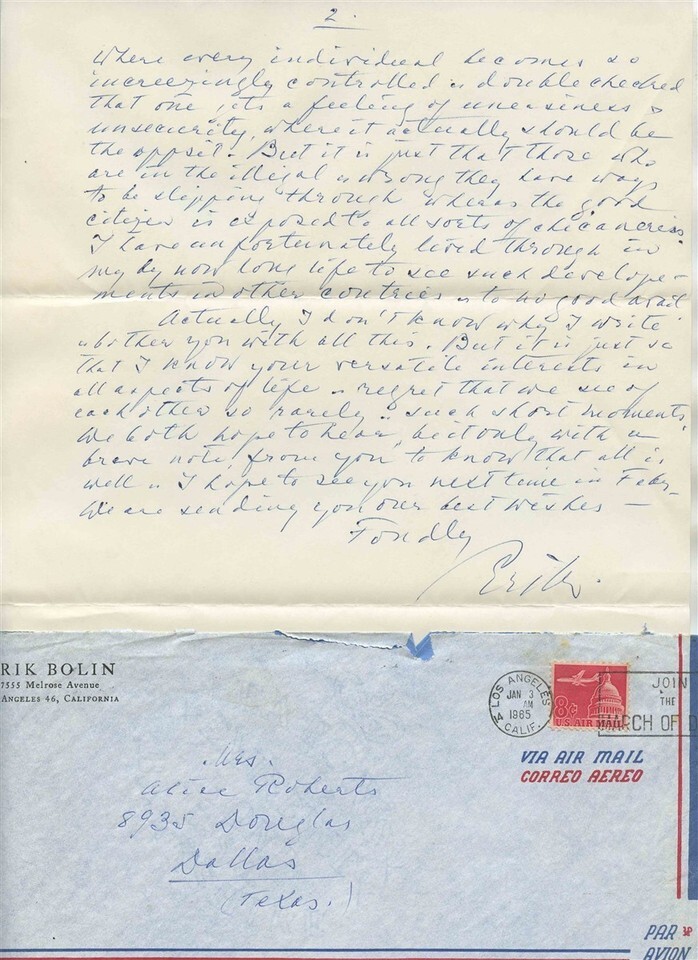 2.
where every individual becomes so
increezingly controlled & doublechecked
that one, its a feeling of uneasiness &
unsecurity, where it actually should be
the opposit. But it is just that those who
are in the illegal & wrong they have ways
to be slipping through wheras the good
citizen is exposed to all sorts of chicaneries.
I have unfortunately lived through in
my by now long life to see such develope-
ments in other contries & to no good avail
Actually I don't know why I write
& bother you with all this. But it is just so
that I know your versatile interests in
all aspects of life & regret that we see of
each other so rarely & such short moments
We both hope to hear, be it only with a
brave note, from you to know that all is
well & I hope to see you next time in Febr-
We are sending you our best wishes —
Fondly
Erik.
RIK BOLIN
7555 Melrose Avenue
ANGELES 46, CALIFORNIA
LOS ANGELES
JAN 3
AM
1965
CALIF.
JOIN
THE
MARCH OF D
8¢
U.S. AIR MAIL
VIA AIR MAIL
CORREO AEREO
Mrs.
Alice Roberts
8935 Douglas
Dallas
(Texas.)
PAR
AVION